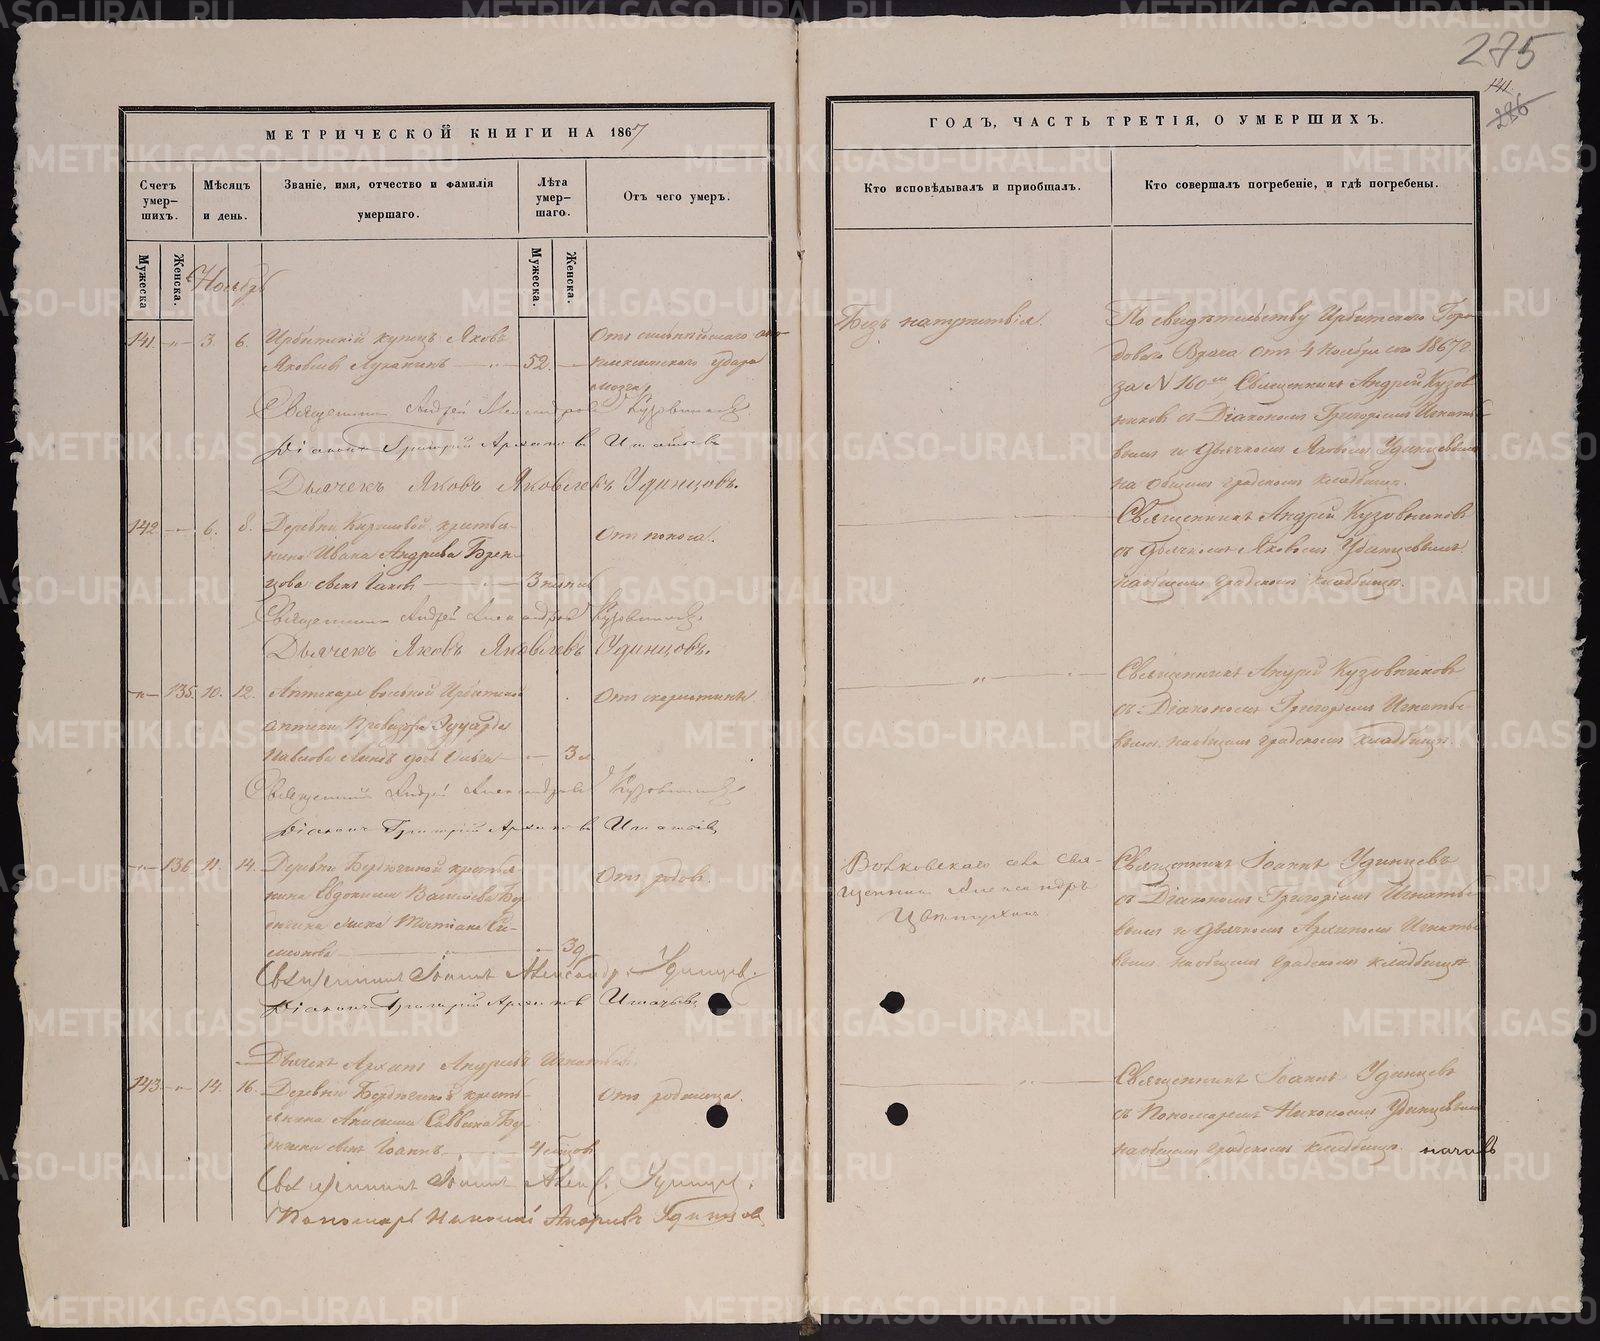 275
141
286
МЕТРИЧЕСКОЙ КНИГИ НА 1867
ГОДЪ, ЧАСТЬ ТРЕТІЯ, О УМЕРШИХЪ.
Счетъ умер-
шихъ.
Мѣсяцъ
и день.
Званіе, имя, отчество и фамилія
умершаго.
Лѣта
умер-
шаго.
Отъ чего умеръ.
Кто исповѣдывалъ и пріобщалъ.
Кто совершалъ погребеніе, и гдѣ погребены.
Мужеска
Женска.
Мужеска.
Женска.
Ноябрь
141 3. 6. Ирбитскій купецъ Яковъ
Яковлевъ 52.
Отъ
удара
мозга
Безъ напутствія.
По свидѣтельству Ирбитскаго Горо-
доваго Врача отъ 4 ноября сего 1867 г.
за № 160 Священникъ Андрей Кузов-
никовъ съ Діакономъ Григоріемъ Игнатье-
вымъ и дьячкомъ Яковомъ Удинцевымъ
на общемъ градскомъ кладбищѣ.
Священникъ Андрей Александровъ Кузовниковъ
Діаконъ Григорій Архиповъ Игнатьевъ
Дьячекъ Яковъ Яковлевъ Удинцовъ.
142 6. 8. Деревни Кирилловой крестья-
нина Ивана Андреева Брен-
цова сынъ 3
Отъ поноса.
Священникъ Андрей Кузовниковъ
съ дьячкомъ Яковомъ Удинцевымъ
на общемъ градскомъ кладбищѣ.
Священникъ Андрей Александровъ Кузовниковъ
Дьячекъ Яковъ Яковлевъ Удинцовъ.
135. 10. 12. Аптекаря вольной Ирбитской
аптеки Провизора Эдуарда
Павлова дочь Ольга 3
Отъ скарлатины
Священникъ Андрей Кузовниковъ
съ Діакономъ Григоріемъ Игнатье-
вымъ на общемъ градскомъ кладбищѣ.
Священникъ Андрей Александровъ Кузовниковъ
Діаконъ Григорій Архиповъ Игнатьевъ
136 11. 14. Деревни Бердюгиной крестья-
нина Евдокима Васильева Бер-
дюгина жена Татіана Си-
монова 39
Отъ родовъ.
Волковскаго села Свя-
щенникъ Александръ
Священникъ Іоаннъ Удинцевъ
съ Діакономъ Григоріемъ Игнатье-
вымъ и дьячкомъ Архипомъ Игнатье-
вымъ на общемъ градскомъ кладбищѣ
Священникъ Іоаннъ Александр. Удинцев.
Діаконъ Григорій Архиповъ Игнатьевъ
Дьячекъ Архипъ Андреевъ Игнатьевъ
143 14. 16. Деревни Бердюгиной кресть-
янина Анисима Саввина Бер-
дюгина сынъ Іоаннъ 4
Отъ родимца.
Священникъ Іоаннъ Удинцевъ
съ Пономаремъ Николаемъ Удинцевымъ
на общемъ градскомъ кладбищѣ.
Священникъ Іоаннъ Алекс. Удинцев.
Пономарь Николай Андреевъ Удинцовъ
METRIKI.GASO-URAL.RU